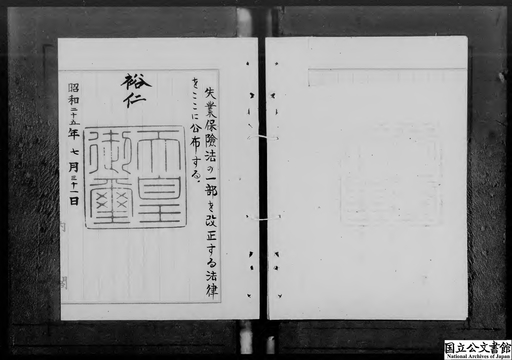 失業保險法の一部を改正する法律
をここに公布する。
裕仁
天皇
御璽
昭和二十五年七月三十一日
国立公文書館
National Archives of Japan